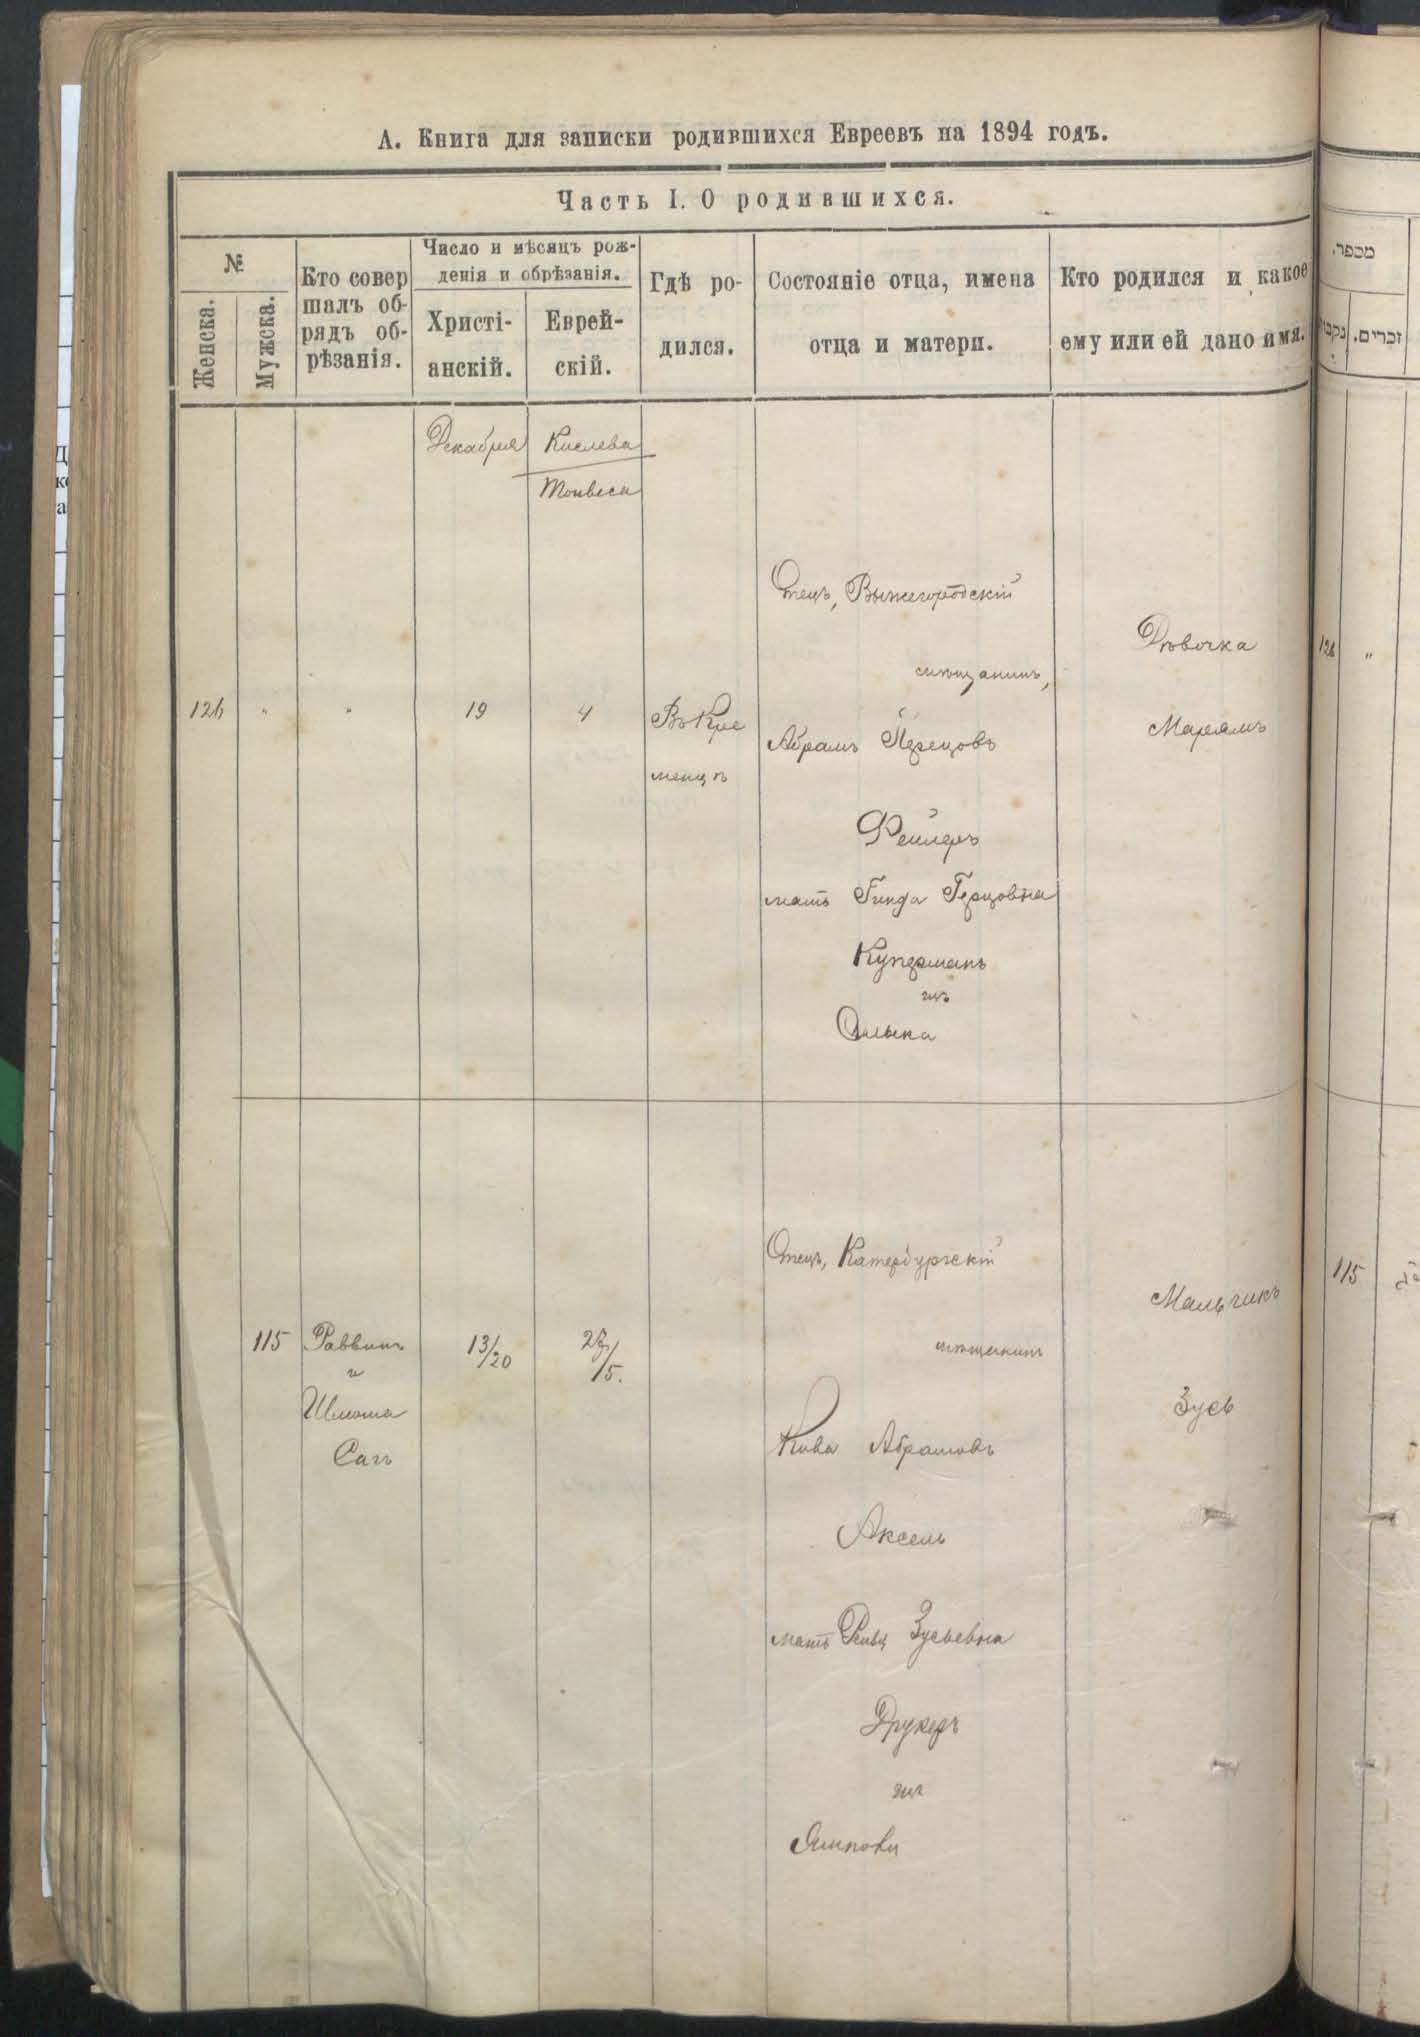 А. Книга для записки родившихся Евреевъ на 1894 годъ.
Часть I. О родившихся.
№
Женска.
Мужска.
Кто совер
шалъ об-
рядъ об-
рѣзанія.
Число и мѣсяцъ рож-
денія и обрѣзанія.
Христі-
анскій.
Еврей-
скій.
Гдѣ ро-
дился.
Состояніе отца, имена
отца и матери.
Кто родился и какое
ему или ей дано имя.
Декабря
Кислева
Тейвеса
126 " " 19 4
Въ Кре
менцѣ
Отецъ, Вышегородскій
мѣщанинъ,
Абрамъ Перецовъ
Фейлеръ
мать Гинда Герцовна
Куперманъ
изъ
Олыка
Дѣвочка
Марямъ
115
Раввинъ
и
Шлёма
Сагъ
13/20
27/5.
Отецъ, Катербургскій
мѣщанинъ
Кива Абрамовъ
Аксель
мать Ривц Зусьевна
Друкеръ
изъ
Ямполи
Мальчикъ
Зусь
מספר.
זכרים.
126 "
115